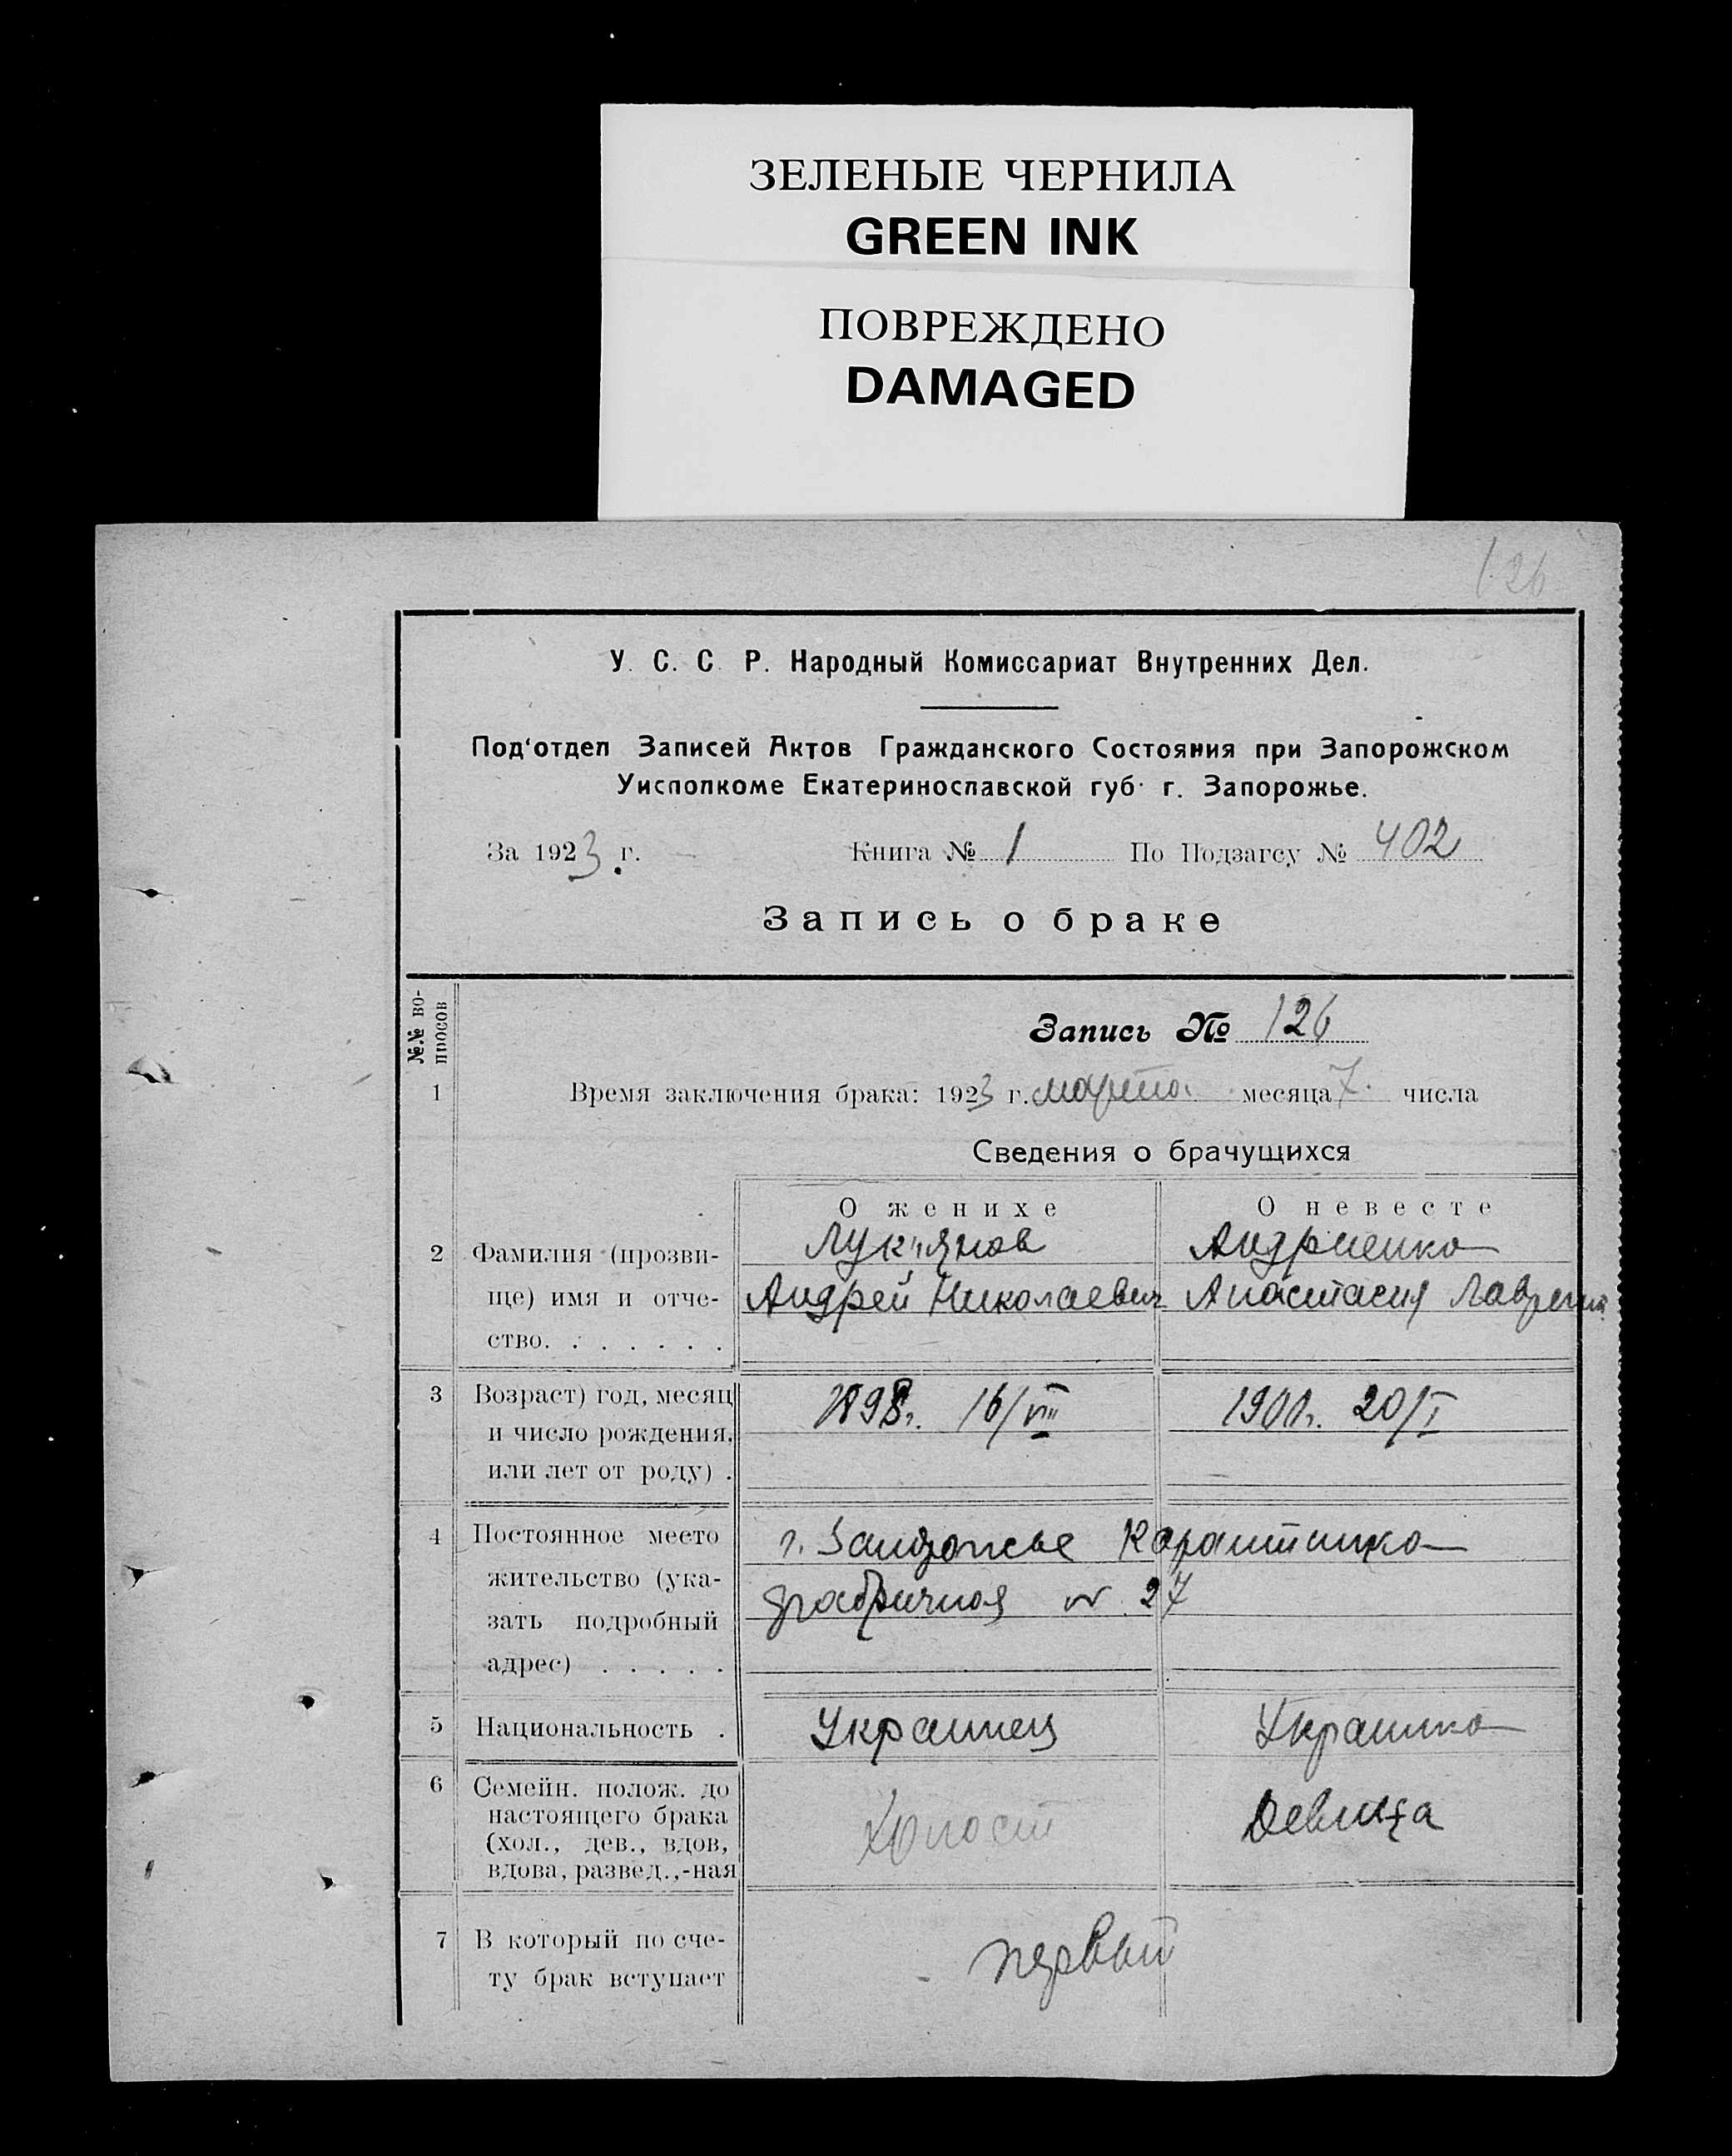 ЗЕЛЕНЫЕ ЧЕРНИЛА
GREEN INK
ПОВРЕЖДЕНО
DAMAGED
126
У. С. С. Р. Народный Комиссариат Внутренних Дел.
Под'отдел Записей Актов Гражданского Состояния при Запорожском
Уисполкоме Екатеринославской губ. г. Запорожье.
За 1923 г. Книга № 1 По Подзагсу № 402
Запись о браке
№.№ во-
просов
Запись № 126
1 Время заключения брака: 1923 г. марта месяца 7. числа
Сведения о брачущихся
О женихе О невесте
2 Фамилия (прозви- Лук'янов Андриенко
ще) имя и отче- Андрей Николаевич Анастасия Лаврент.
ство. . . . . . .
3 Возраст) год, месяц 1898г. 16/VIII 1900г. 20/I
и число рождения,
или лет от роду) .
4 Постоянное место г. Запорожье
жительство (ука- № 27
зать подробный
адрес) . . . . .
5 Национальность . Украинец Украинка
6 Семейн. полож. до
настоящего брака
(хол., дев., вдов, Холост Девица
вдова, развед.,-ная
7 В который по сче- первый
ту брак вступает